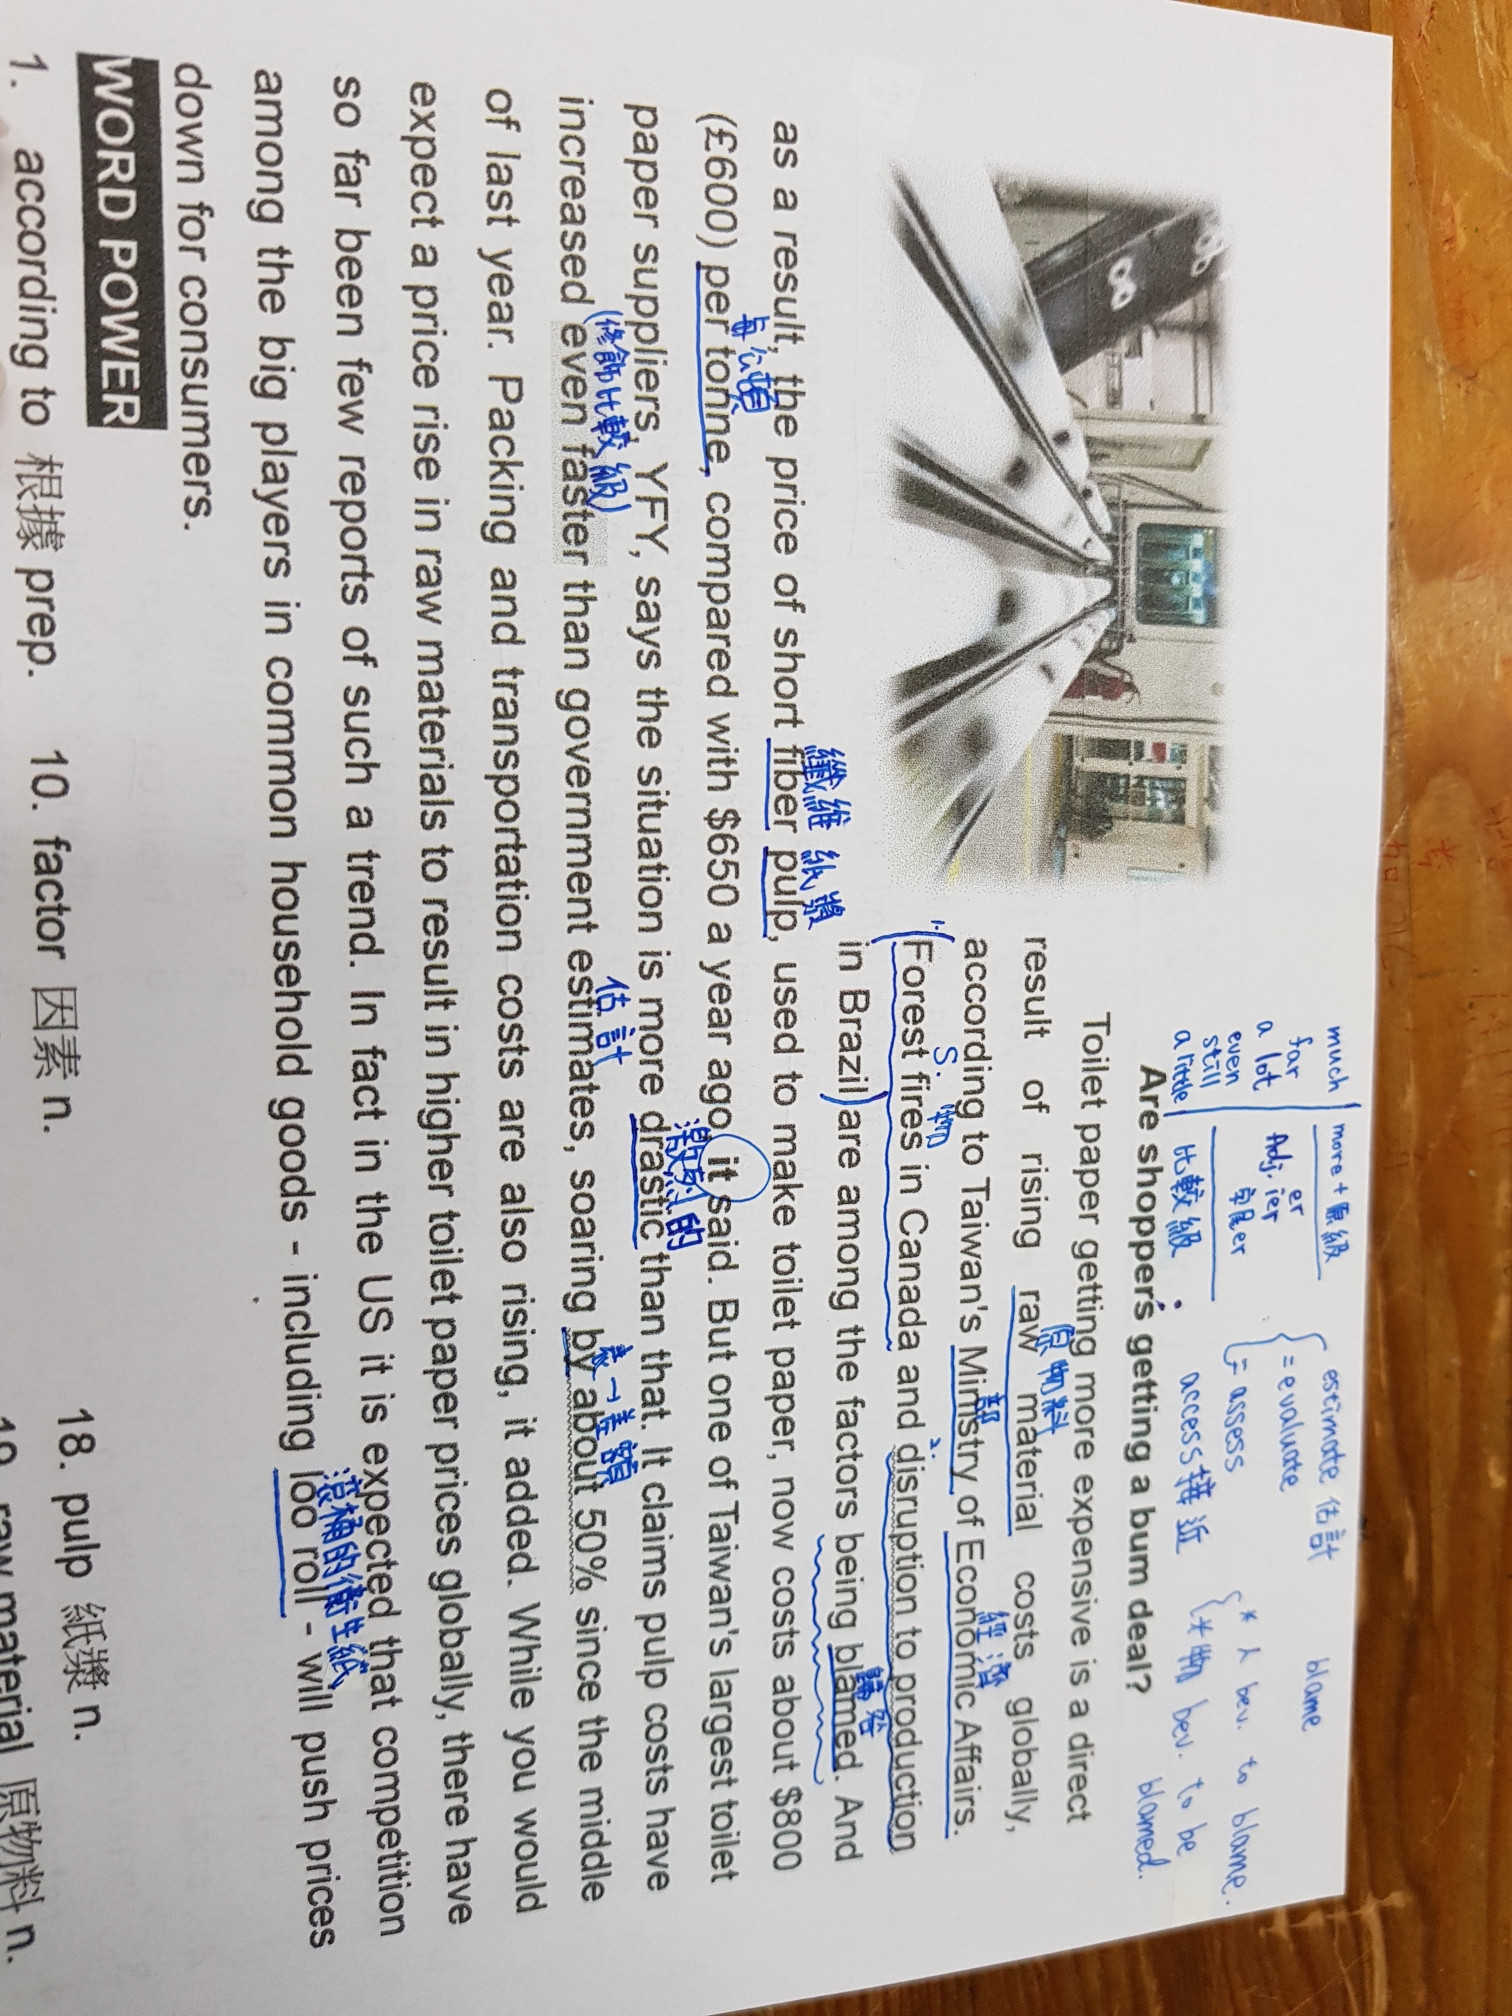 much
far
a lot
even
still
a little
more + 原級
er
Adj. ier
字尾er
比較級
estimate 估計
= evaluate
= assess
access 接近
blame
* 人 bev. to blame.
* 物 bev. to be
blamed.
Are shoppers getting a bum deal?
Toilet paper getting more expensive is a direct
原物料
result of rising raw material costs globally,
部 經濟
according to Taiwan's Ministry of Economic Affairs.
1. S. 物 2.
(Forest fires in Canada and disruption to production
歸咎
in Brazil) are among the factors being blamed. And
纖維 紙漿
as a result, the price of short fiber pulp, used to make toilet paper, now costs about $800
每公頓
(£600) per tonne, compared with $650 a year ago, it said. But one of Taiwan's largest toilet
激烈的
paper suppliers, YFY, says the situation is more drastic than that. It claims pulp costs have
(修飾比較級) 估計 表一差額
increased even faster than government estimates, soaring by about 50% since the middle
of last year. Packing and transportation costs are also rising, it added. While you would
expect a price rise in raw materials to result in higher toilet paper prices globally, there have
so far been few reports of such a trend. In fact in the US it is expected that competition
滾桶的衛生紙
among the big players in common household goods - including loo roll - will push prices
down for consumers.
WORD POWER
1. according to 根據 prep.
10. factor 因素 n.
18. pulp 紙漿 n.
19. raw material 原物料 n.